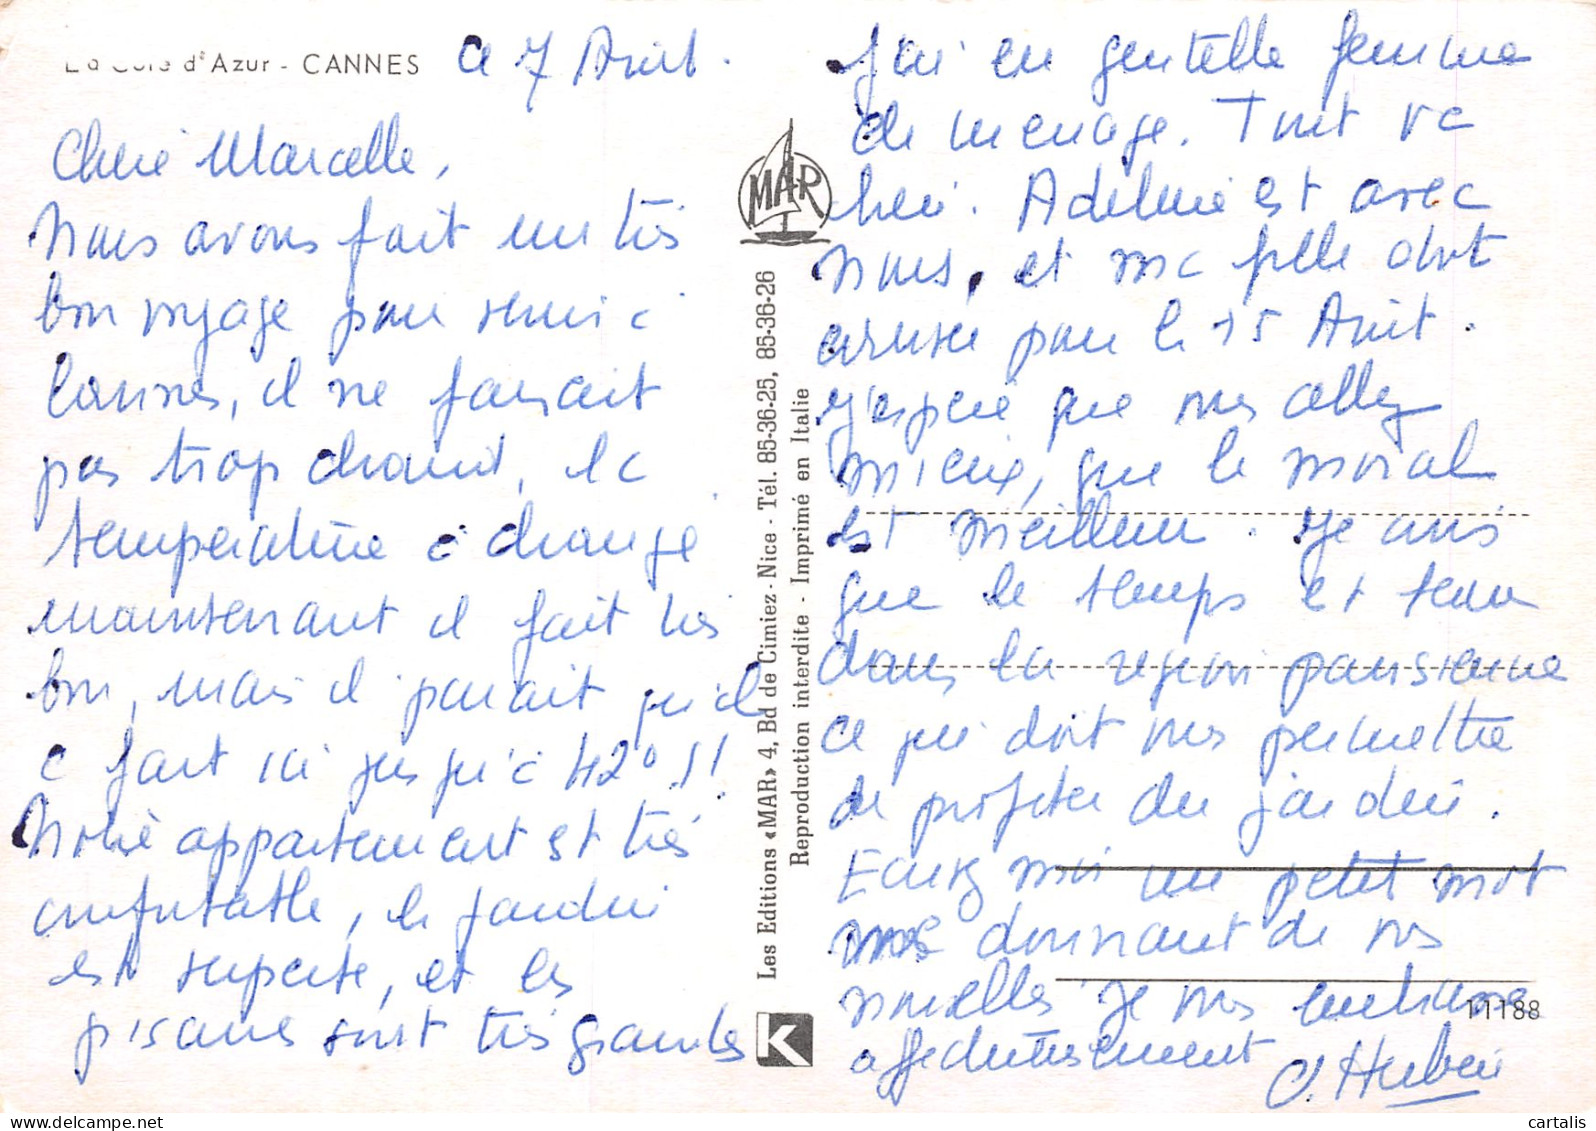 La Côte d'Azur - CANNES
Ce 7 Août.
Chère Marcelle,
Nous avons fait un très
bon voyage pour venir à
Cannes, il ne faisait
pas trop chaud, la
température a changé
maintenant il fait très
bon, mais il parait qu'il
a fait ici jusqu'à 42° !!
Notre appartement est très
confortable, le jardin
est superbe, et les
pisane sont très grandes
J'ai eu gentille femme
de menage. Tout va
bien. Adeline est avec
nous, et ma fille doit
arriver pour le 15 Août.
J'espère que vous allez
mieux, que le moral
est meilleur. Je crois
que le temps est beau
dans la région parisienne
ce qui doit vous permettre
de profiter du jardin.
Ecrivez moi un petit mot
me donnant de vos
nouvelles Je vous embrasse
affectueusement
MAR
Les Editions «MAR» 4, Bd de Cimiez - Nice - Tél. 85-36-25, 85-36-26
Reproduction interdite - Imprimé en Italie
K
11188
cartalis